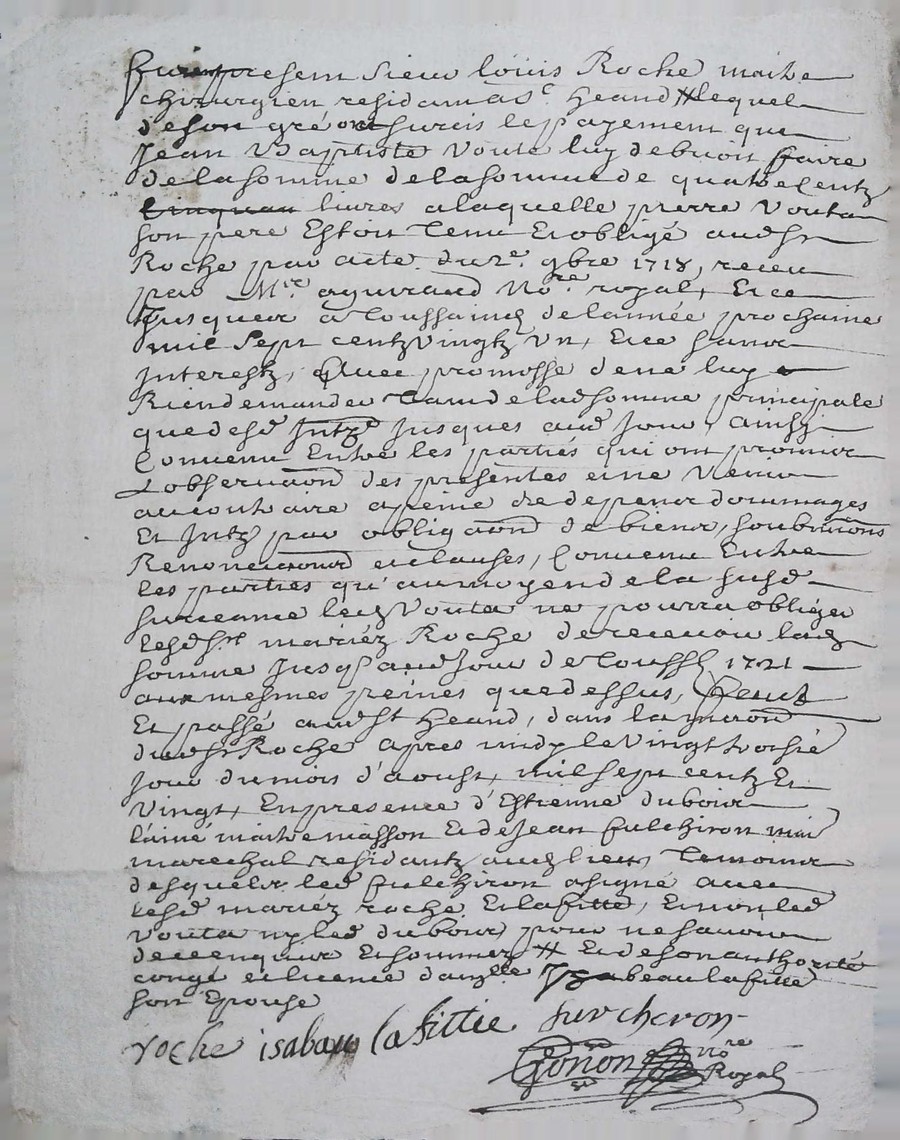 Fut present Sieur loüis Roche maitre
chirurgien residant a St heand # lequel
de son gré ont surcis le payement que
Jean Baptiste Vouta luy debvoit faire
de la somme de la somme de quatre centz
cinquan livres a laquelle pierre Vouta
son pere Estoit tenu Et obligé audt sr
Roche par acte du 2e 9bre 1718, receu
par Mre aguirand Nore royal, Et ce
Jusques a toussaincts de l'année prochaine
mil Sept centz vingtz Vn, Et ce sans
Interestz, Avec promesse de ne luy
Rien demander tant de lad somme principale
que desd Intz Jusques aud Jour, ainsy
Convenu Entre les parties qui ont promis
L'observaon des presentes et ne Venir
au contraire a peine de depens dommages
Et Intz par obligaon de biens, soubmions
Renonciaons et clauses, Convenu Entre
les parties qu'au moyen de la susd
surceance led Vouta ne pourra obliger
lesd srs mariéz Roche de recevoir lad
somme Jusqs aud Jour de toussts 1721
aux mesmes peines que dessus, faict
Et passé aud St heand, dans la maison
dud sr Roche apres midy le Vingt troisie
Jour du mois d'aoust, mil sept centz Et
Vingt, En presence d'Estienne dubois
l'ainé maitre masson Et de Jean fulchiron mai
marechal residantz aud lieu, temoins
desquels led fulchiron a signé avec
lesd mariéz roche Et lafitte, Et non led
Vouta ny led dubois pour ne scavoir
de ce enquis Et sommez # Et de son authorité
congé et licence damlle Isabeau lafitte
son Epouse
roche isabau lafittte furcheron
Gonon nore
Royal